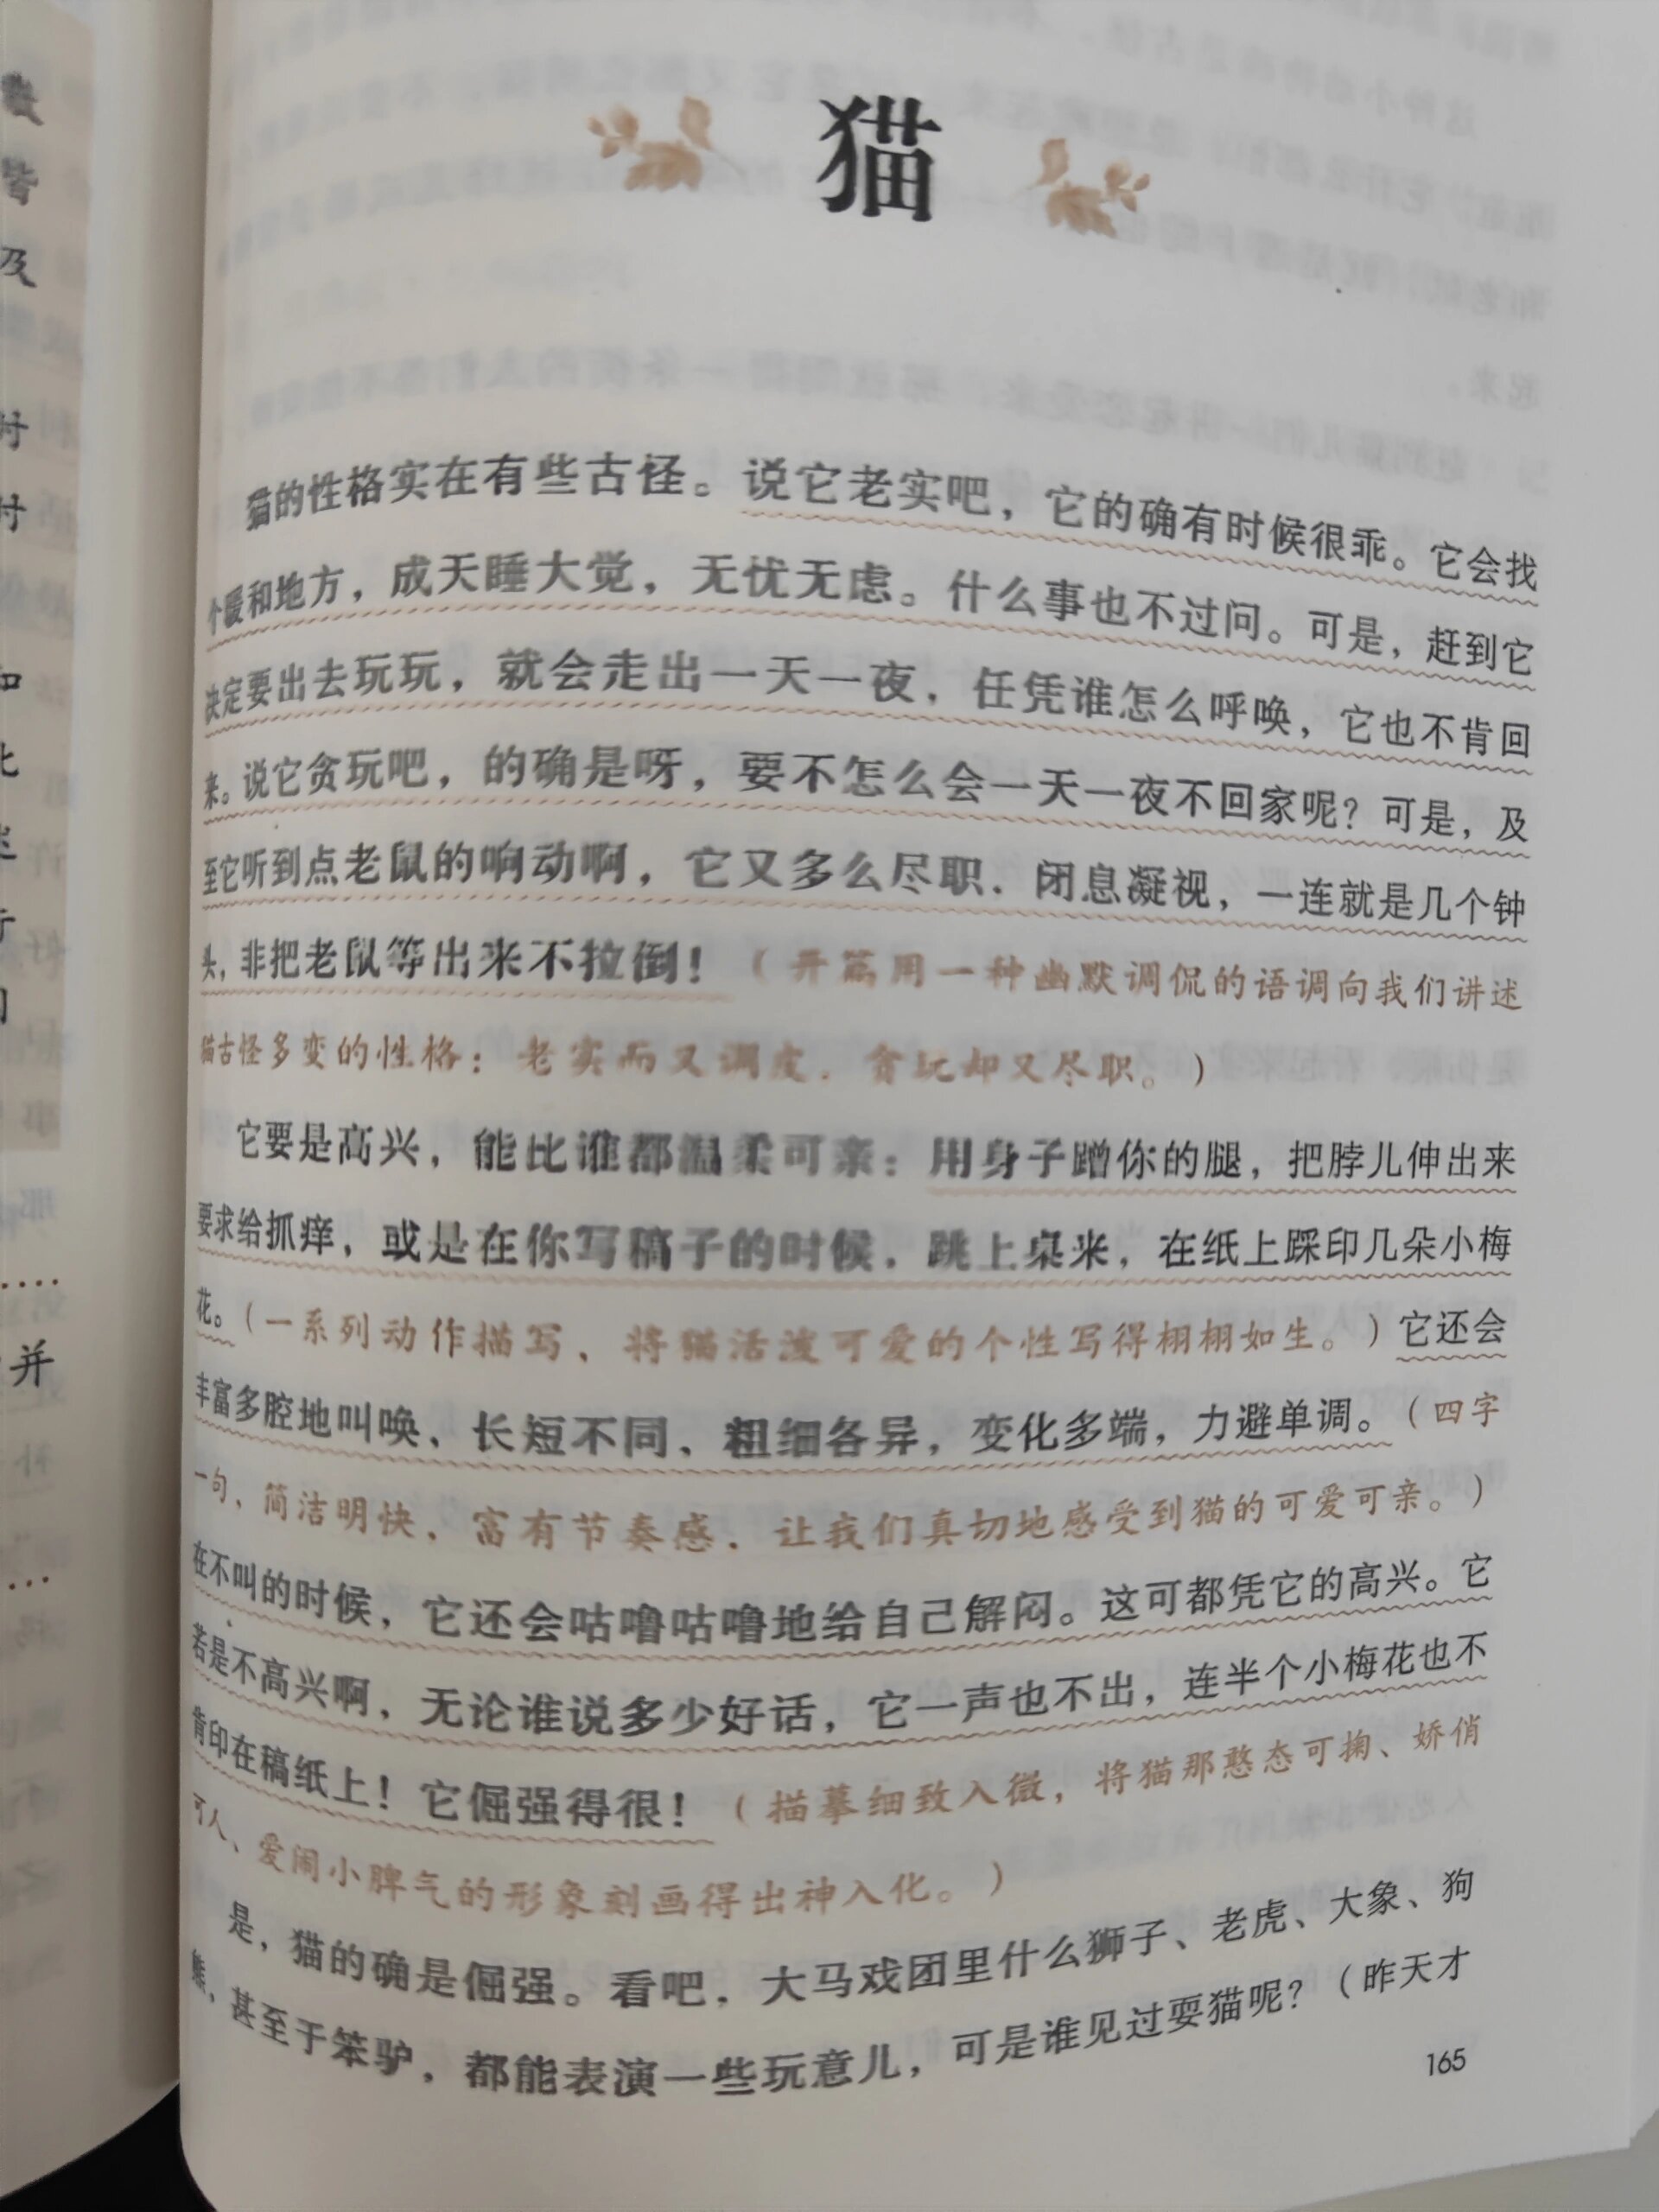 猫
猫的性格实在有些古怪。说它老实吧，它的确有时候很乖。它会找
个暖和地方，成天睡大觉，无忧无虑。什么事也不过问。可是，赶到它
决定要出去玩玩，就会走出一天一夜，任凭谁怎么呼唤，它也不肯回
来。说它贪玩吧，的确是呀，要不怎么会一天一夜不回家呢？可是，及
至它听到点老鼠的响动啊，它又多么尽职，闭息凝视，一连就是几个钟
头，非把老鼠等出来不拉倒！（开篇用一种幽默调侃的语调向我们讲述
猫古怪多变的性格：老实而又调皮，贪玩却又尽职。）
它要是高兴，能比谁都温柔可亲：用身子蹭你的腿，把脖儿伸出来
要求给抓痒，或是在你写稿子的时候，跳上桌来，在纸上踩印几朵小梅
花。（一系列动作描写，将猫活泼可爱的个性写得栩栩如生。）它还会
丰富多腔地叫唤，长短不同，粗细各异，变化多端，力避单调。（四字
一句，简洁明快，富有节奏感，让我们真切地感受到猫的可爱可亲。）
在不叫的时候，它还会咕噜咕噜地给自己解闷。这可都凭它的高兴。它
若是不高兴啊，无论谁说多少好话，它一声也不出，连半个小梅花也不
肯印在稿纸上！它倔强得很！（描摹细致入微，将猫那憨态可掬、娇俏
可人、爱闹小脾气的形象刻画得出神入化。）
是，猫的确是倔强。看吧，大马戏团里什么狮子、老虎、大象、狗
熊，甚至于笨驴，都能表演一些玩意儿，可是谁见过耍猫呢？（昨天才
165